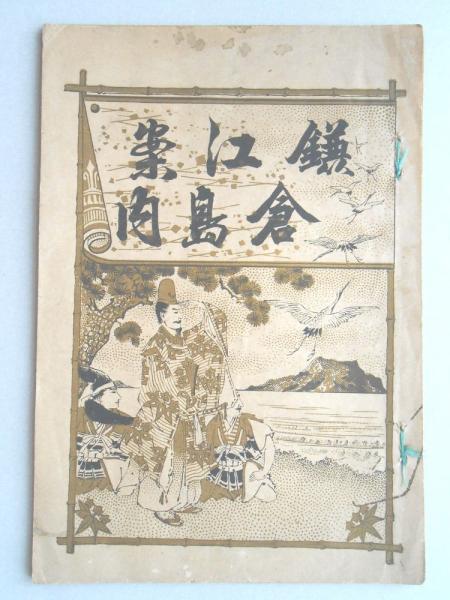 鎌倉
江島
案内